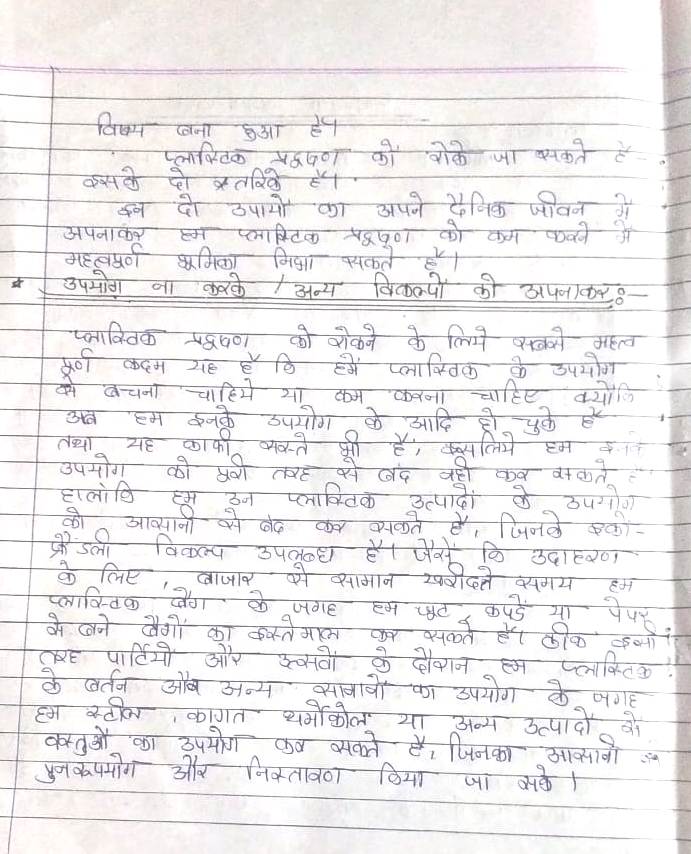 विषय बना हुआ है।
प्लास्टिक प्रदुषण को रोके जा सकते है
इसके दो तरिके है।
इन दो उपायों का अपने दैनिक जीवन में
अपनाकर हम प्लास्टिक प्रदुषण को कम करने में
महत्वपुर्ण भुमिका निभा सकते है।
* उपयोग ना करके / अन्य विकल्पों को अपनाकर :-
प्लास्टिक प्रदुषण को रोकने के लिये सबसे महत्व
पुर्ण कदम यह है कि हमें प्लास्टिक के उपयोग
से बचना चाहिये या कम करना चाहिए क्योंकि
अब हम इनके उपयोग के आदि हो चुके है
तथा यह काफी सस्ते भी है, इसलिये हम इनके
उपयोग को पुरी तरह से बंद नही कर सकते है
हालांकि हम उन प्लास्टिक उत्पादों के उपयोग
को आसानी से बंद कर सकते है, जिनके इको-
फ्रेंडली विकल्प उपलब्ध है। जैसे कि उदाहरण
के लिए, बाजार से सामान खरीदते समय हम
प्लास्टिक बैग के जगह हम जुट, कपडे या पेपर
से बने बैगों का इस्तेमाल कर सकते है। ठीक इसी
तरह पार्टियो और उत्सवों के दौरान हम प्लास्टिक
के बर्तन और अन्य सामानों का उपयोग के जगह
हम स्टील, कागत थर्माकोल या अन्य उत्पादो से
वस्तुओं का उपयोग कर सकते है, जिनका आसानी
पुनरूपयोग और निस्तारण किया जा सके।